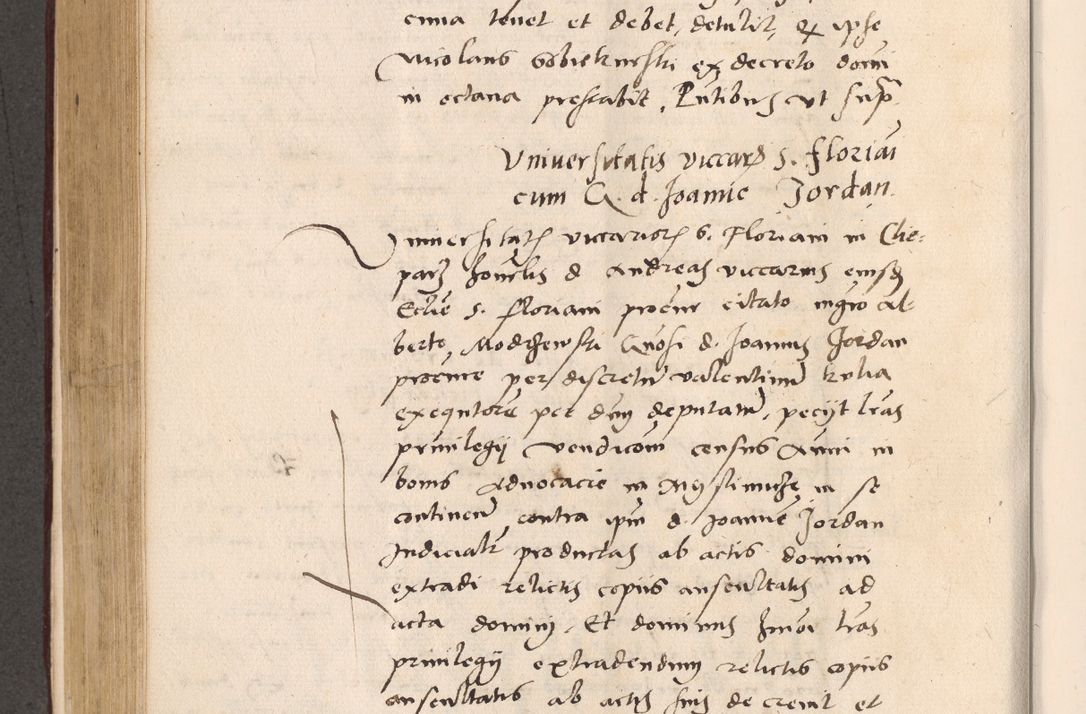 cima tenet et debet, detulit, & ipse
Nicolaus Sobiekurski ex decreto domi
in octava prestabit, Pntibus ut supra
Universitatis viccarior S. Floriai
cum G. d. Joanne Jordan.
Universitatis viccariorum S. Floriani in Cle-
parz honorabilis d Andreas viccarius eiusdem
Ecclie S. Floriani procur citato magro Al-
berto Modrzewski Gnosi d. Joannis Jordan
procure per discretum Valentinum kulia
exequutore per dnm deputatum, pecijt lras
privilegij vendicom census Anni in
bonis Advocacie in in se
continen contra ipm d. Joanne Jordan
Judicialr productas ab actis domini
extradi relictis copiis auscultatis ad
acta domini, Et dominus lras
privilegij extradendum relictis copiis
auscultatis ab actis suis decrevit et